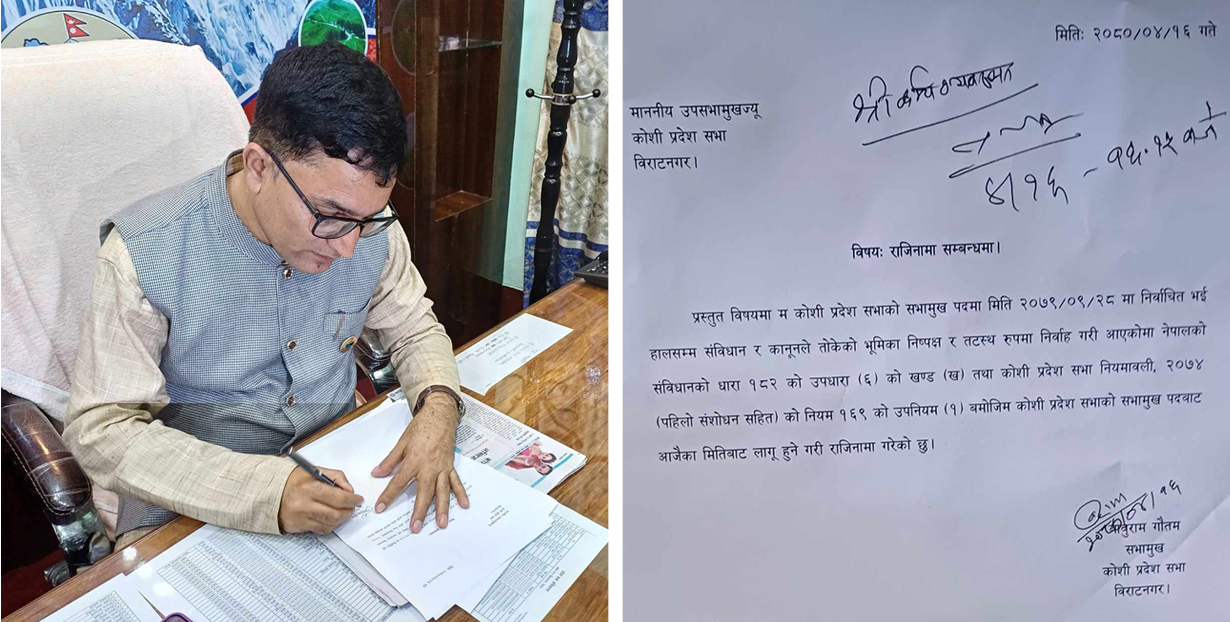 मितिः २०८०/०४/१६ गते
माननीय उपसभामुखज्यू
कोशी प्रदेश सभा
विराटनगर।
श्री
४।१६ - १६.१५ बजे
विषयः राजिनामा सम्बन्धमा।
प्रस्तुत विषयमा म कोशी प्रदेश सभाको सभामुख पदमा मिति २०७९/०९/२८ मा निर्वाचित भई
हालसम्म संविधान र कानूनले तोकेको भूमिका निष्पक्ष र तटस्थ रुपमा निर्वाह गरी आएकोमा नेपालको
संविधानको धारा १८२ को उपधारा (६) को खण्ड (ख) तथा कोशी प्रदेश सभा नियमावली, २०७४
(पहिलो संशोधन सहित) को नियम १६९ को उपनियम (१) बमोजिम कोशी प्रदेश सभाको सभामुख पदबाट
आजैका मितिबाट लागू हुने गरी राजिनामा गरेको छु।
गौतम
सभामुख
कोशी प्रदेश सभा
विराटनगर।